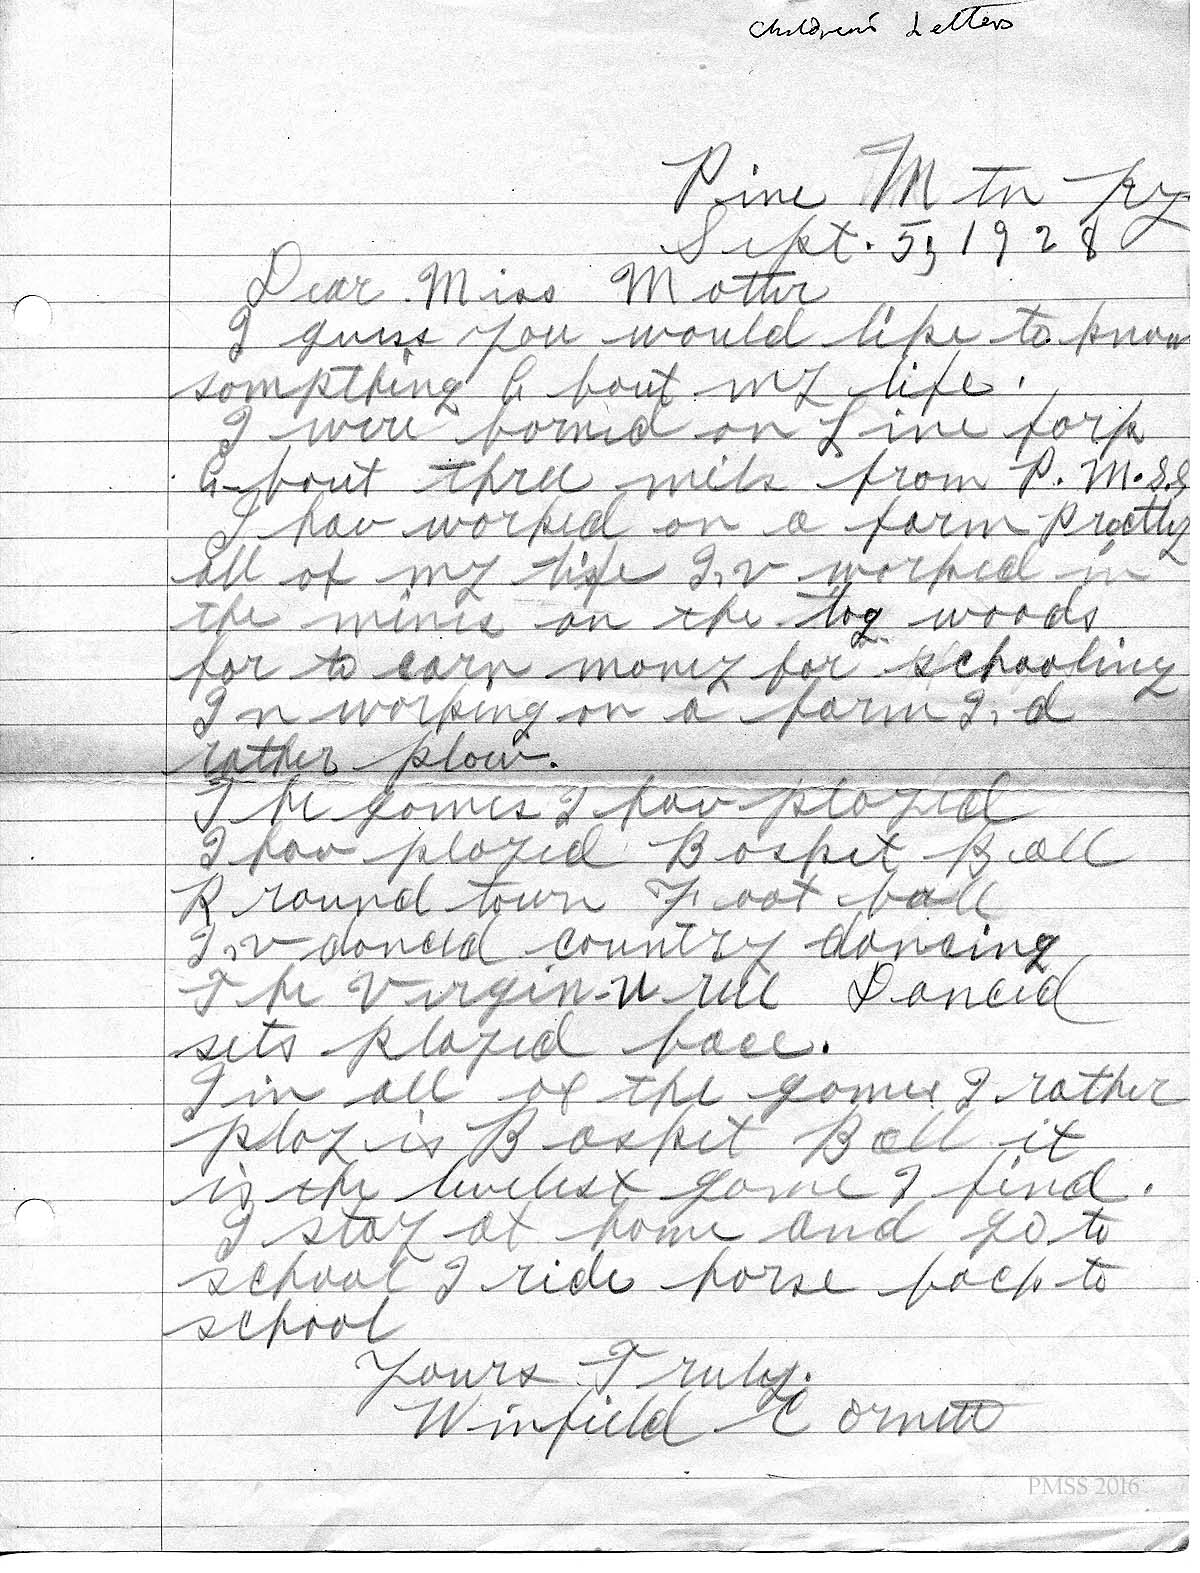 Children's Letters
Pine Mtn Ky
Sept. 5, 1928
Dear Miss Motter
I guess you would like to know
sompthing A bout my life.
I were borned on Line fork
A-bout three mils from P. M. S.S
I hav worked on a farm Prettly
all of my life I,v worked in
the mines on the log woods
for to earn money for schooling
In working on a farm I,d
rather plow.
The games I hav played
I hav played Basket Ball
Round town Foot ball
I,v danced country dancing
The Virgin reel Danced
sets played bace.
I in all of the games I rather
play is Basket Ball it
is the liveliest game I find.
I stay at home and go to
school I ride horse back to
school
Yours Truly.
Winfield Cornett
PMSS 2016